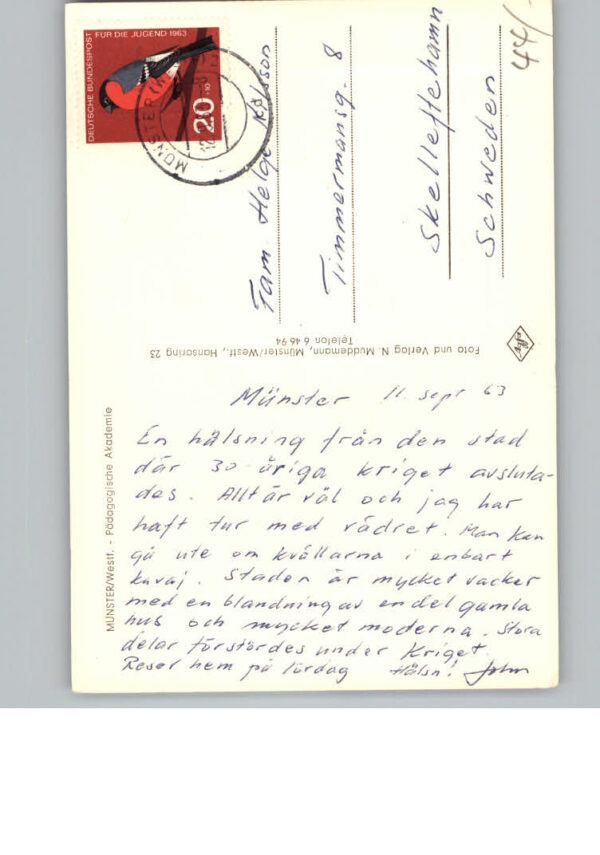 DEUTSCHE BUNDESPOST
FÜR DIE JUGEND 1963
20+10
MÜNSTER
Fam. Helge
Timmermansg. 8
Skelleftehamn
Schweden
44/-
Foto und Verlag N. Muddemann, Münster/Westf., Hansaring 23
Telefon 6 46 94
Agfa
MÜNSTER/Westf. - Pädagogische Akademie
Münster 11. sept 63
En hälsning från den stad
där 30-åriga kriget avsluta-
des. Allt är väl och jag har
haft tur med vädret. Man kan
gå ute om kvällarna i enbart
kavaj. Staden är mycket vacker
med en blandning av en del gamla
hus och mycket moderna. Stora
delar förstördes under kriget.
Reser hem på lördag Hälsn! John